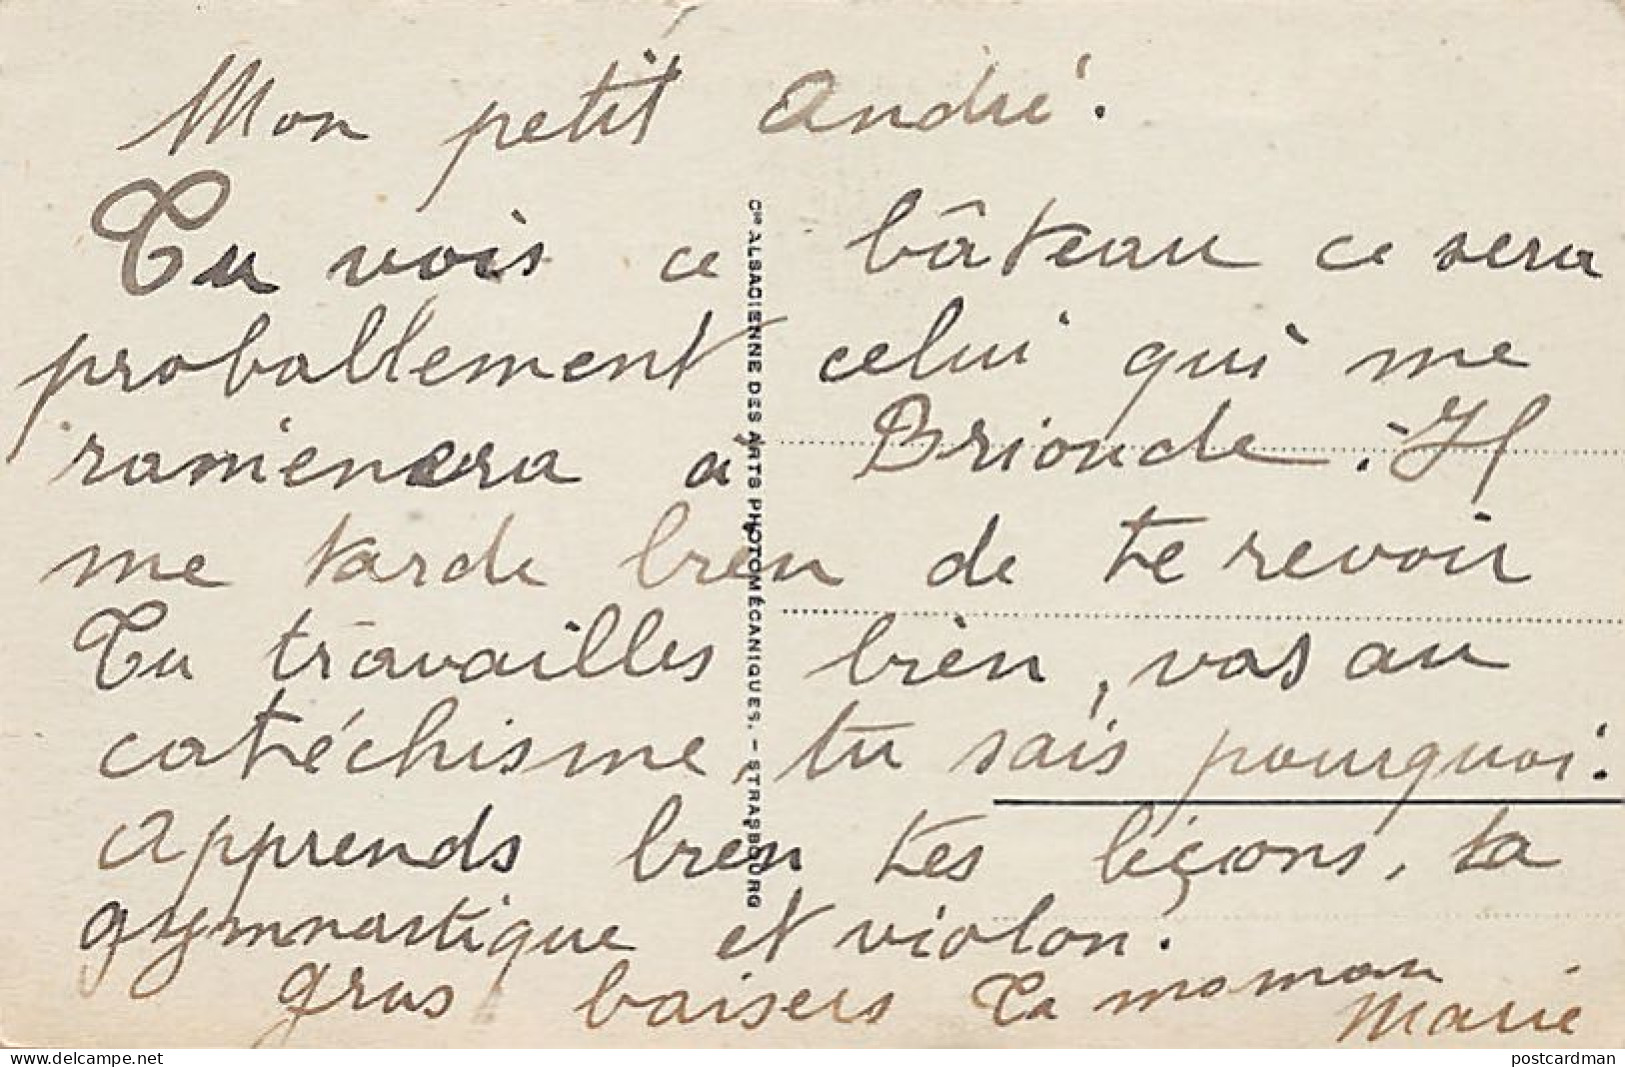 Mon petit André.
Tu vois ce bâteau ce sera
proballement celui qui me
ramienera a Brioude. Il
me tarde bien de te revoir
Tu travailles bien, vas au
catéchisme, tu sais pourquoi.
Apprends bien tes leiçons, ta
gymnastique et violon.
gros baisers Ta maman
Marie
Cie ALSACIENNE DES ARTS PHOTOMÉCANIQUES. - STRASBOURG
postcardman